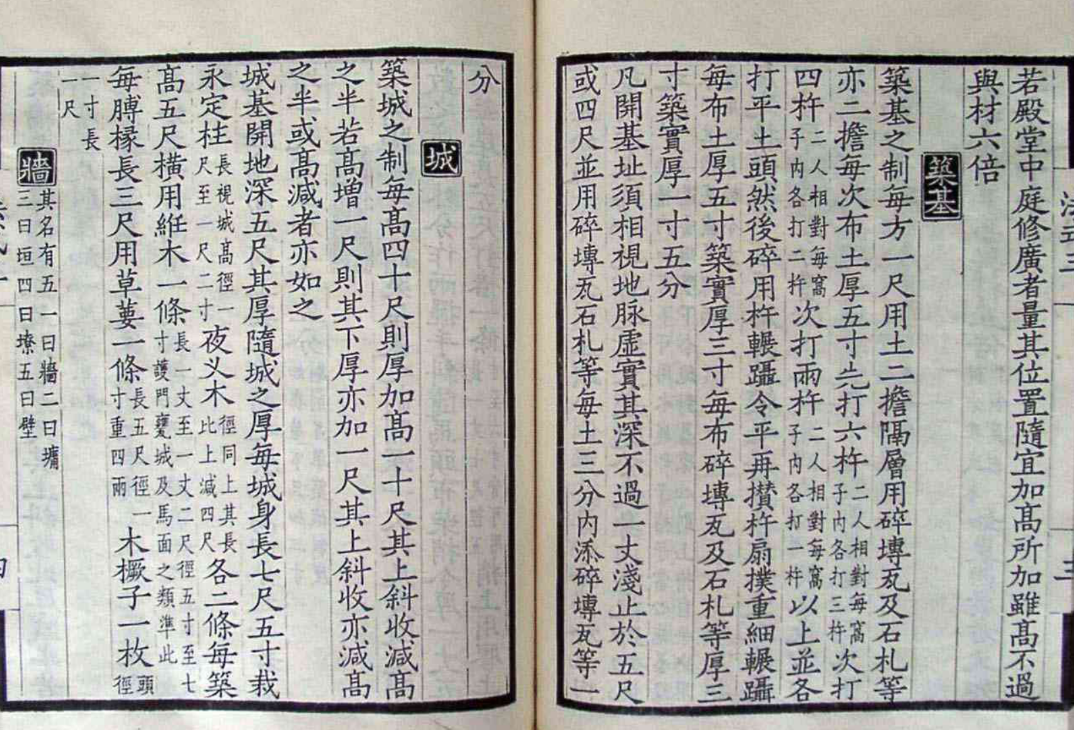 若殿堂中庭修廣者量其位置隨宜加髙所加雖髙不過
與材六倍
築基
築基之制每方一尺用土二擔隔層用碎塼瓦及石札等
亦二擔每次布土厚五寸先打六杵二人相對每窩子内各打三杵次打
四杵二人相對每窩子内各打二杵次打兩杵二人相對每窩子内各打一杵以上並各
打平土頭然後碎用杵輾躡令平再攢杵扇撲重細輾躡
每布土厚五寸築實厚三寸每布碎塼瓦及石札等厚三
寸築實厚一寸五分
凡開基址須相視地脉虛實其深不過一丈淺止於五尺
或四尺並用碎塼瓦石札等每土三分内添碎塼瓦等一
分
城
築城之制每髙四十尺則厚加髙一十尺其上斜收減髙
之半若髙增一尺則其下厚亦加一尺其上斜收亦減髙
之半或髙減者亦如之
城基開地深五尺其厚隨城之厚每城身長七尺五寸栽
永定柱長視城髙徑一尺至一尺二寸夜叉木徑同上其長比上減四尺各二條每築
髙五尺横用絍木一條長一丈至一丈二尺徑五寸至七寸護門甕城及馬面之類準此
每膊椽長三尺用草葽一條長五尺徑一寸重四兩木橛子一枚頭徑
一寸長一尺
牆其名有五一曰牆二曰墉三曰垣四曰㙩五曰壁